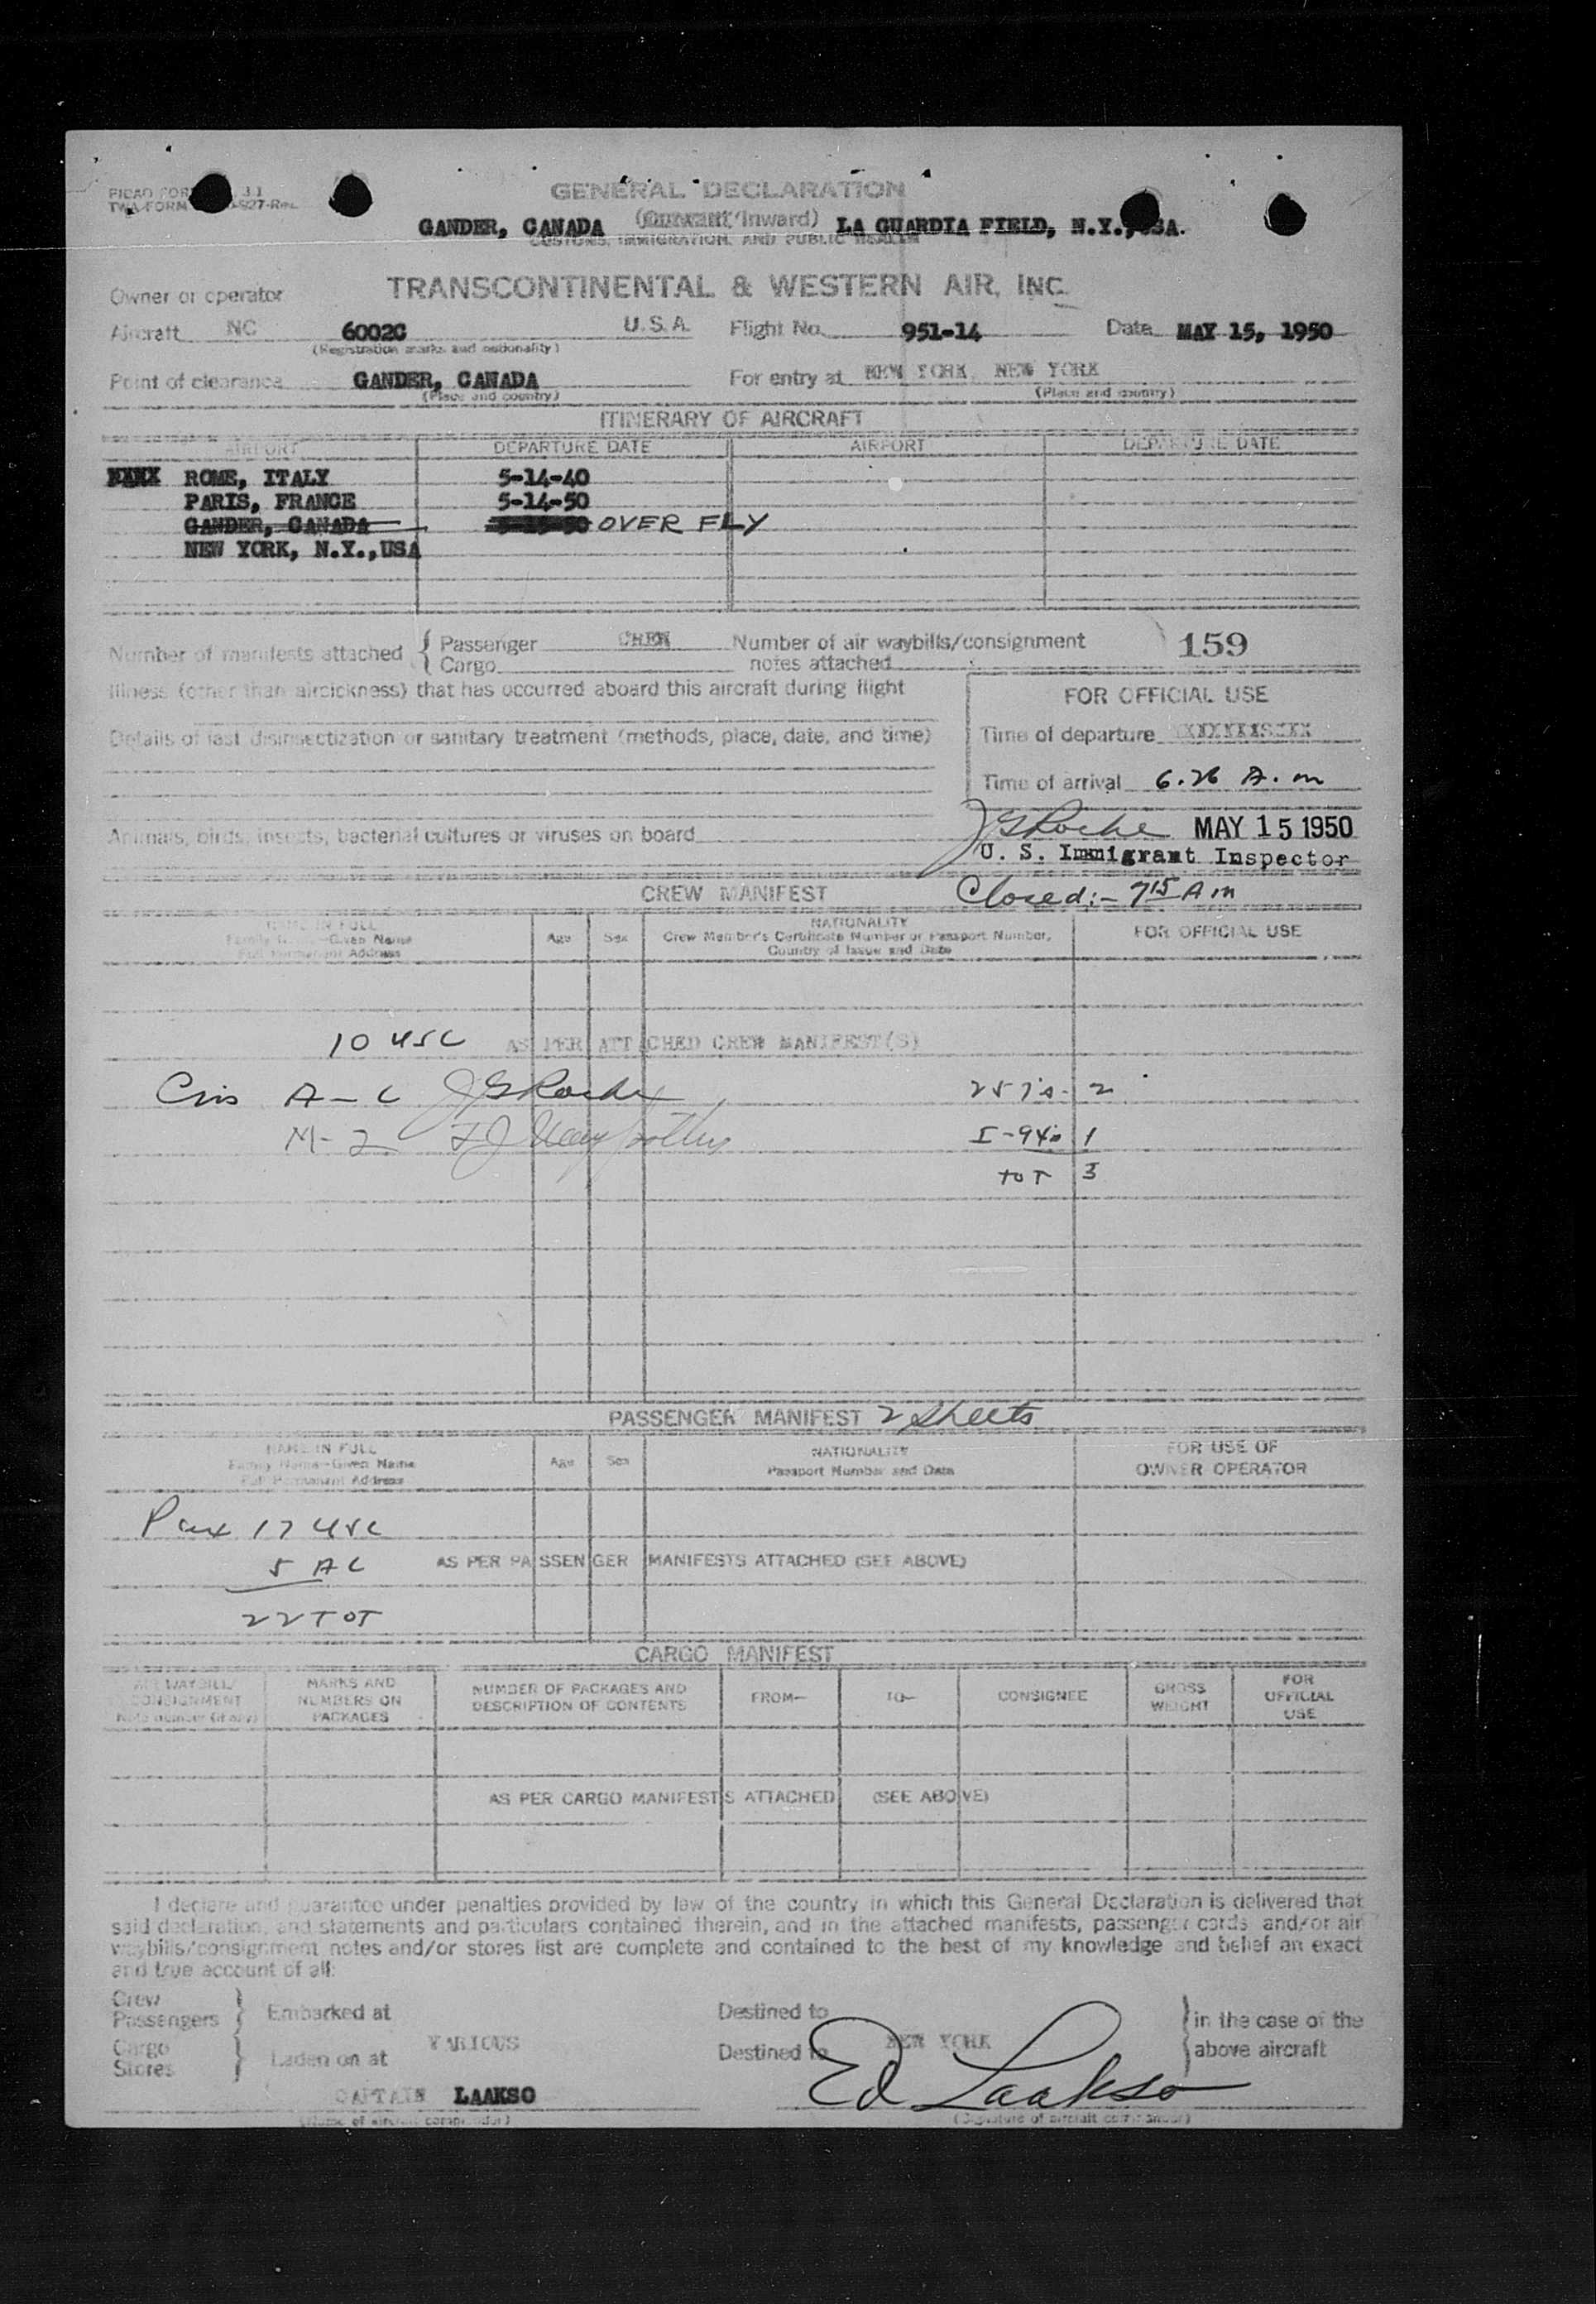 GENERAL DECLARATION
(Outward/Inward)
GANDER, CANADA LA GUARDIA FIELD, N.Y.,USA.
CUSTOMS, IMMIGRATION, AND PUBLIC HEALTH
Owner or operator TRANSCONTINENTAL & WESTERN AIR, INC.
Aircraft NC 6002C U.S.A. Flight No. 951-14 Date MAY 15, 1950
(Registration marks and nationality)
Point of clearance GANDER, CANADA For entry at NEW YORK, NEW YORK
(Place and country) (Place and country)
ITINERARY OF AIRCRAFT
AIRPORT DEPARTURE DATE AIRPORT DEPARTURE DATE
ROME, ITALY 5-14-40
PARIS, FRANCE 5-14-50
GANDER, CANADA 5-15-50 OVER FLY
NEW YORK, N.Y.,USA
Number of manifests attached { Passenger CREW Number of air waybills/consignment 159
Cargo notes attached
Illness (other than airsickness) that has occurred aboard this aircraft during flight
FOR OFFICIAL USE
Details of last disinsectization or sanitary treatment (methods, place, date, and time)
Time of departure
Time of arrival 6.26 A.m
Animals, birds, insects, bacterial cultures or viruses on board
JGRoche MAY 15 1950
U. S. Immigrant Inspector
Closed:- 715 Am
CREW MANIFEST
NAME IN FULL
Family Name-Given Name
Full Permanent Address
Age Sex
NATIONALITY
Crew Member's Certificate Number or Passport Number,
Country of Issue and Date
FOR OFFICIAL USE
10 USC AS PER ATTACHED CREW MANIFEST(S)
A-L JGRoche 257's- 2
M-Z I-94's 1
TOT 3
PASSENGER MANIFEST 2 sheets
NAME IN FULL
Family Name-Given Name
Full Permanent Address
Age Sex
NATIONALITY
Passport Number and Date
FOR USE OF
OWNER OPERATOR
Pax 17 USC
5 AC AS PER PASSENGER MANIFESTS ATTACHED (SEE ABOVE)
22 TOT
CARGO MANIFEST
AIR WAYBILL/
CONSIGNMENT
Note number (if any)
MARKS AND
NUMBERS ON
PACKAGES
NUMBER OF PACKAGES AND
DESCRIPTION OF CONTENTS
FROM- TO- CONSIGNEE
GROSS
WEIGHT
FOR
OFFICIAL
USE
AS PER CARGO MANIFESTS ATTACHED (SEE ABOVE)
I declare and guarantee under penalties provided by law of the country in which this General Declaration is delivered that
said declaration, and statements and particulars contained therein, and in the attached manifests, passenger cards and/or air
waybills/consignment notes and/or stores list are complete and contained to the best of my knowledge and belief an exact
and true account of all:
Crew
Passengers } Embarked at Destined to } in the case of the
Cargo
Stores } Laden on at VARIOUS Destined to NEW YORK above aircraft
CAPTAIN LAAKSO Ed Laakso
(Name of aircraft commander) (Signature of aircraft commander)